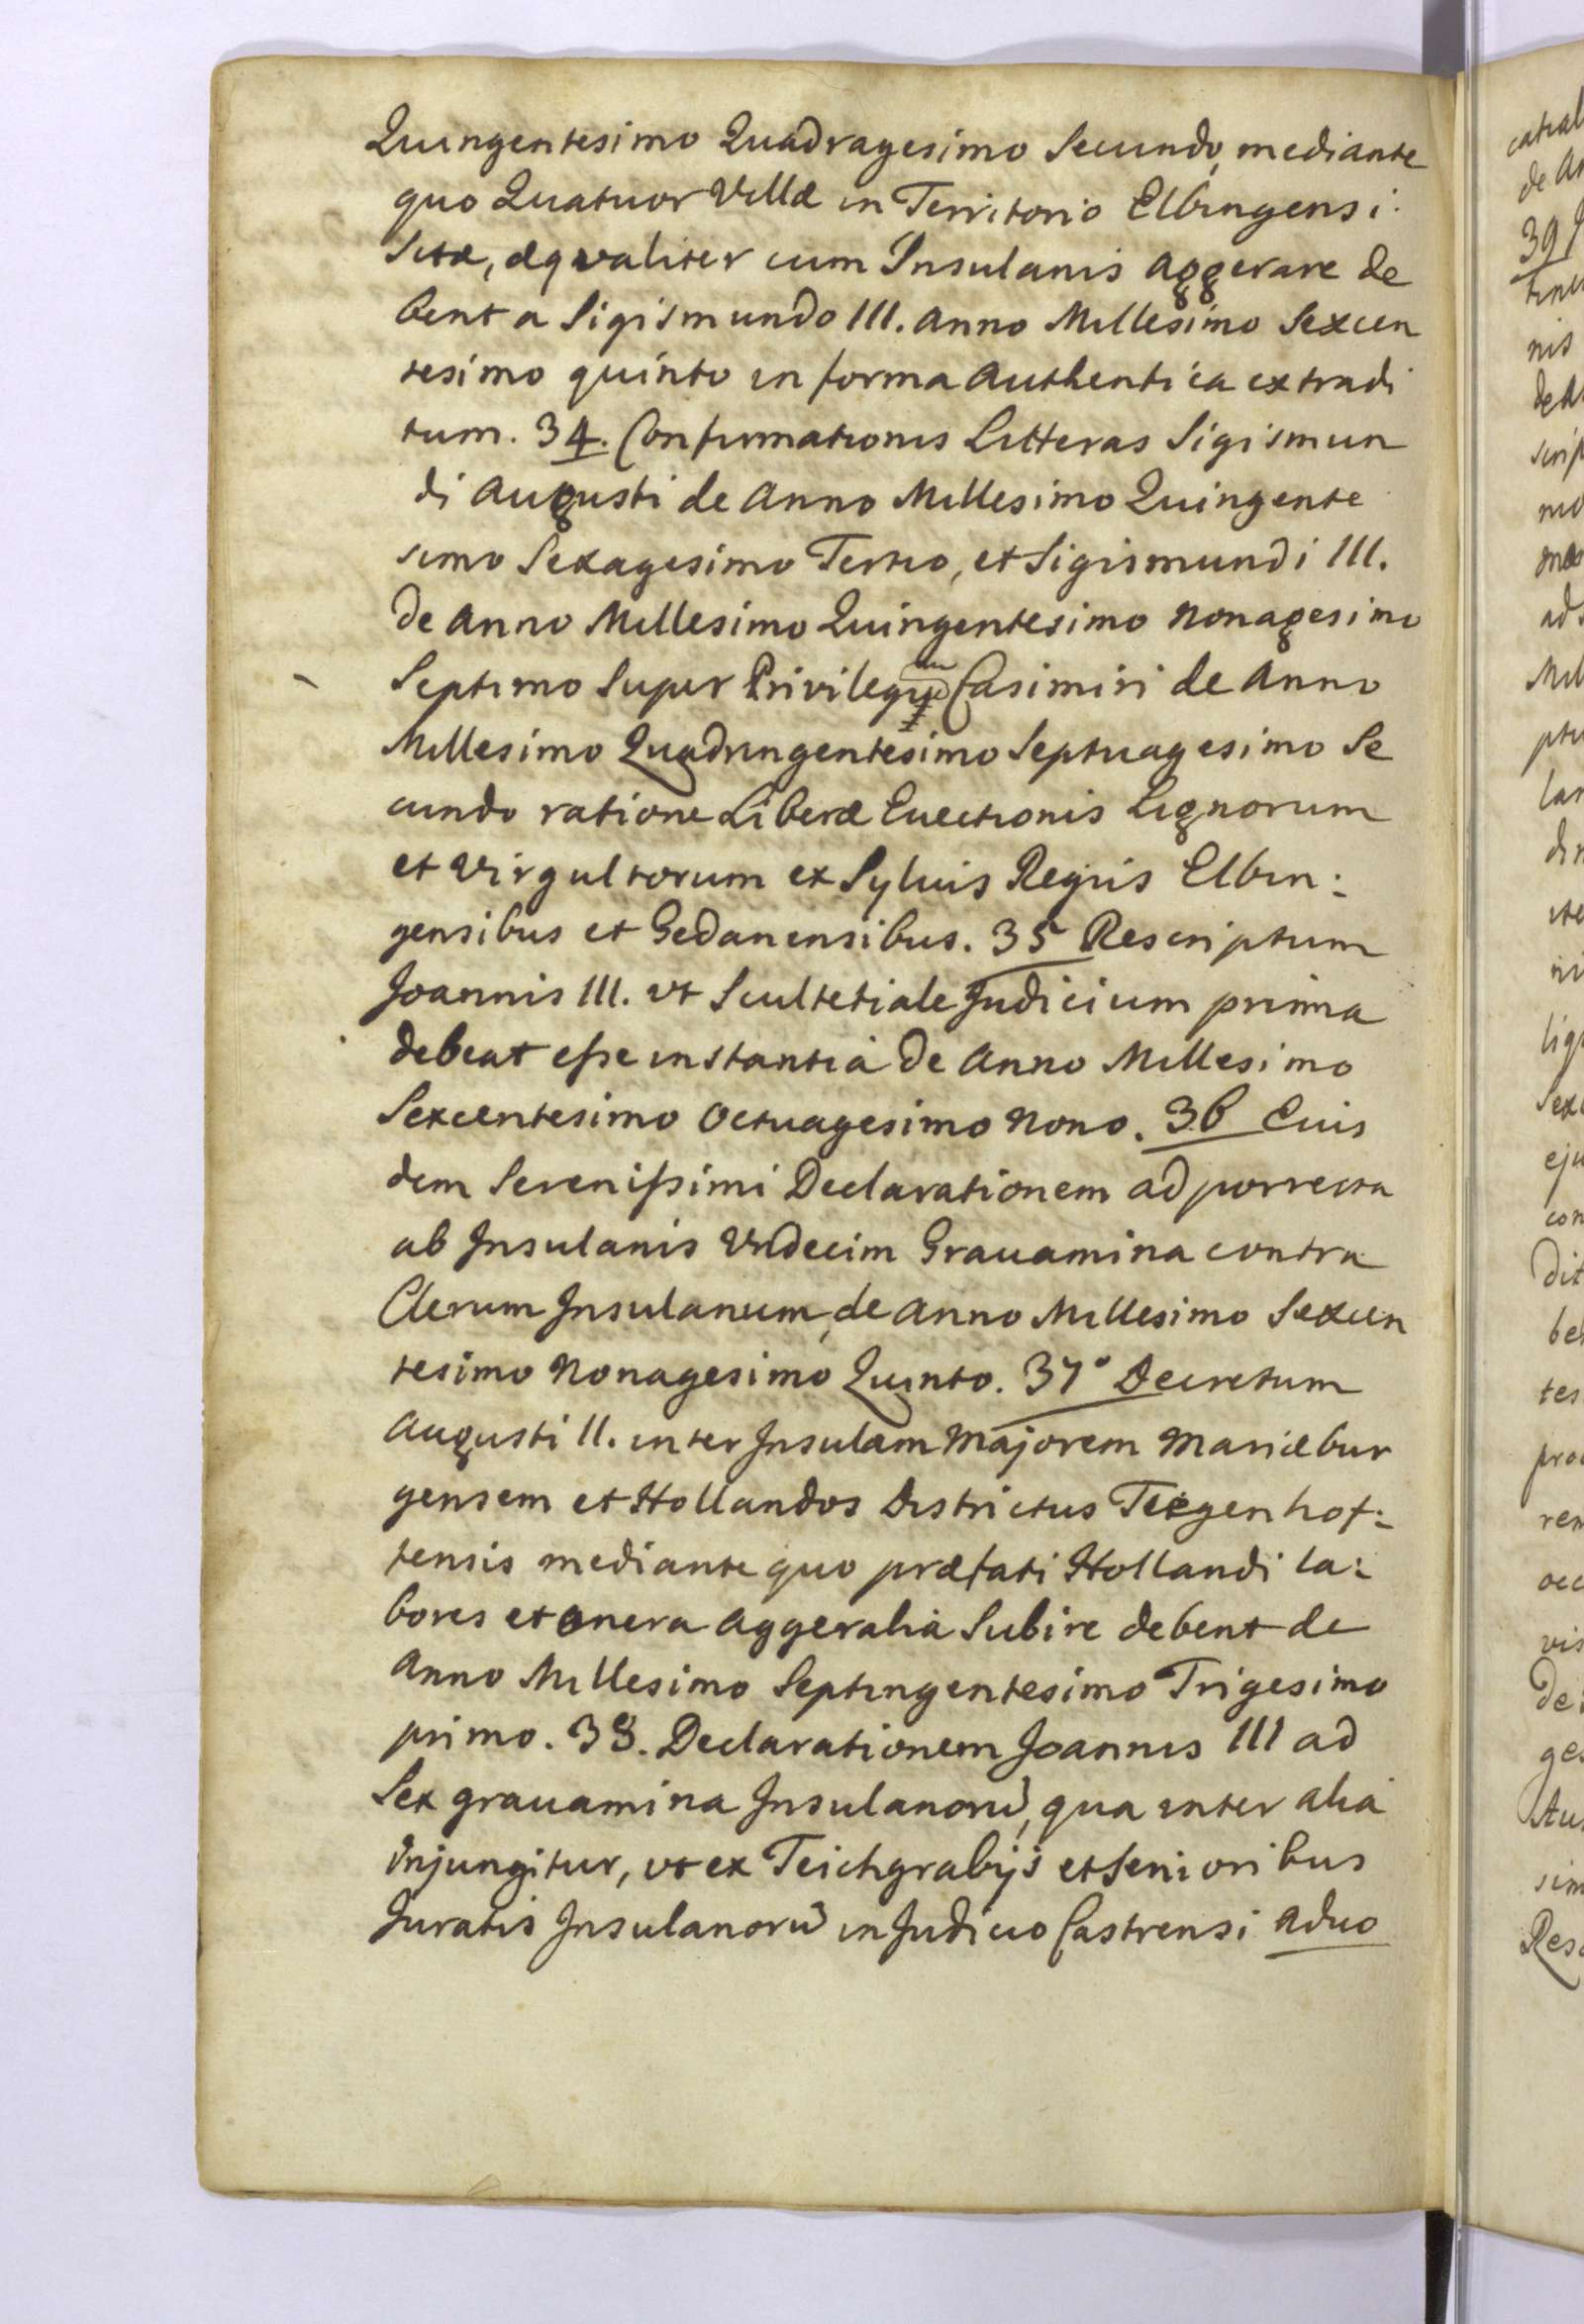 Quingentesimo Quadragesimo Secundo, mediante
quo Quatuor Villæ in Territorio Elbingensi
Sitæ, æqvaliter cum Insulanis Aggerare de
bent a Sigismundo III. Anno Millesimo Sexcen
tesimo quinto in forma Authentica extradi
tum. 34. Confirmationis Litteras Sigismun
di Augusti de Anno Millesimo Quingente
simo Sexagesimo Tertio, et Sigismundi III.
De Anno Millesimo Quingentesimo Nonagesimo
Septimo Super Privilegium Casimiri de Anno
Millesimo Quadringentesimo Septuagesimo Se
cundo ratione Liberæ Euectionis Lignorum
et Virgultorum ex Syluis Regiis Elbin:
gensibus et Gedanensibus. 35 Rescriptum
Joannis III. vt Scultetiale Judicium prima
debeat esse instantia de Anno Millesimo
Sexcentesimo Octuagesimo Nono. 36 Eius
dem Serenissimi Declarationem ad porrecta
ab Insulanis Vndecim Grauamina contra
Clerum Insulanum, de Anno Millesimo Sexcen
tesimo Nonagesimo Quinto. 37° Decretum
Augusti II. inter Insulam Majorem Mariæbur
gensem et Hollandos Districtus Tiegenhof:
tensis mediante quo præfati Hollandi la:
bores et onera Aggeralia Subire debent de
Anno Millesimo Septingentesimo Trigesimo
primo. 38. Declarationem Joannis III ad
Sex grauamina Insulanorũ, qua inter alia
Injungitur, vt ex Teichgrabijs et Senioribus
Juratis Insulanorũ in Judicio Castrensi aduo